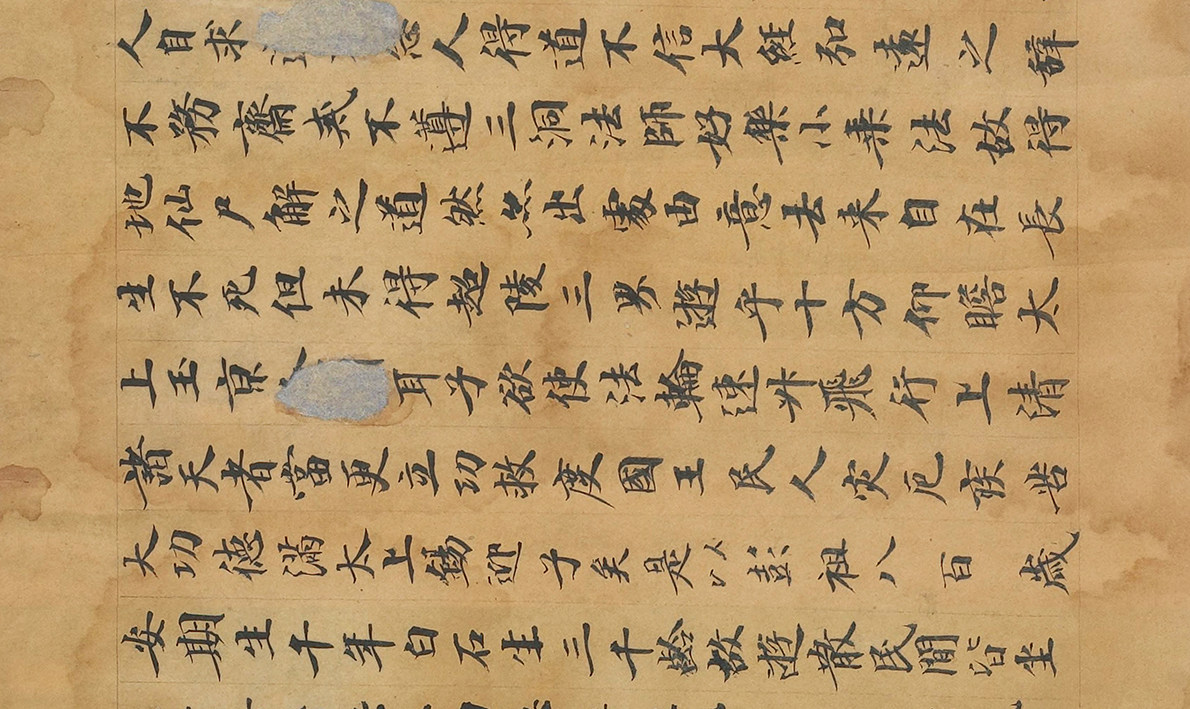 人自求人得道不信大經弘遠之辭
不務齋戒不遵三洞法師好樂小乘法故得
地仙尸解之道然亦出處由意去來自在長
生不死但未得超陵三界遊乎十方仰瞻太
上玉京耳子欲使法輪速升飛行上清
諸天者當更立功救度國王民人災厄疾苦
大功德滿太上錫迎子矣是以彭祖八百歲
安期生千年白石生三千齡故遊散民間皆坐